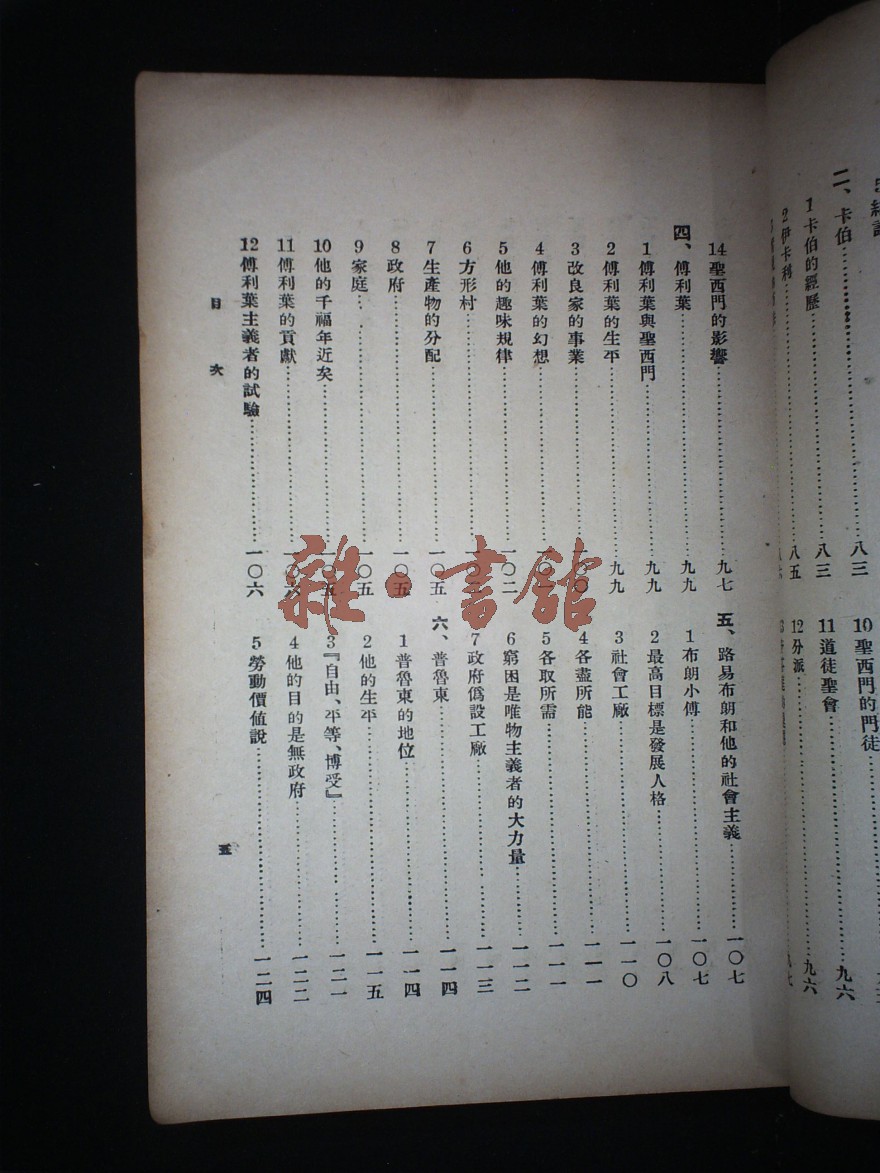 二、卡伯……八三
1卡伯的經歷……八三
2伊卡科……八五
10聖西門的門徒
11道徒聖會……九六
12分派……九六
14聖西門的影響……九七
四、傅利葉……九九
1傅利葉與聖西門……九九
2傅利葉的生平……九九
3改良家的事業
4傅利葉的幻想
5他的趣味規律……一〇二
6方形村
7生產物的分配……一〇五
8政府……一〇五
9家庭……一〇五
10他的千福年近矣……一〇五
11傅利葉的貢獻……一〇六
12傅利葉主義者的試驗……一〇六
五、路易布朗和他的社會主義……一〇七
1布朗小傅……一〇七
2最高目標是發展人格……一〇八
3社會工廠……一一〇
4各盡所能……一一一
5各取所需……一一一
6窮困是唯物主義者的大力量……一一二
7政府僞設工廠……一一三
六、普魯東……一一四
1普魯東的地位……一一四
2他的生平……一一五
3『自由、平等、博受』……一二一
4他的目的是無政府……一二二
5勞動價値說……一二四
目次
五
雜·書館